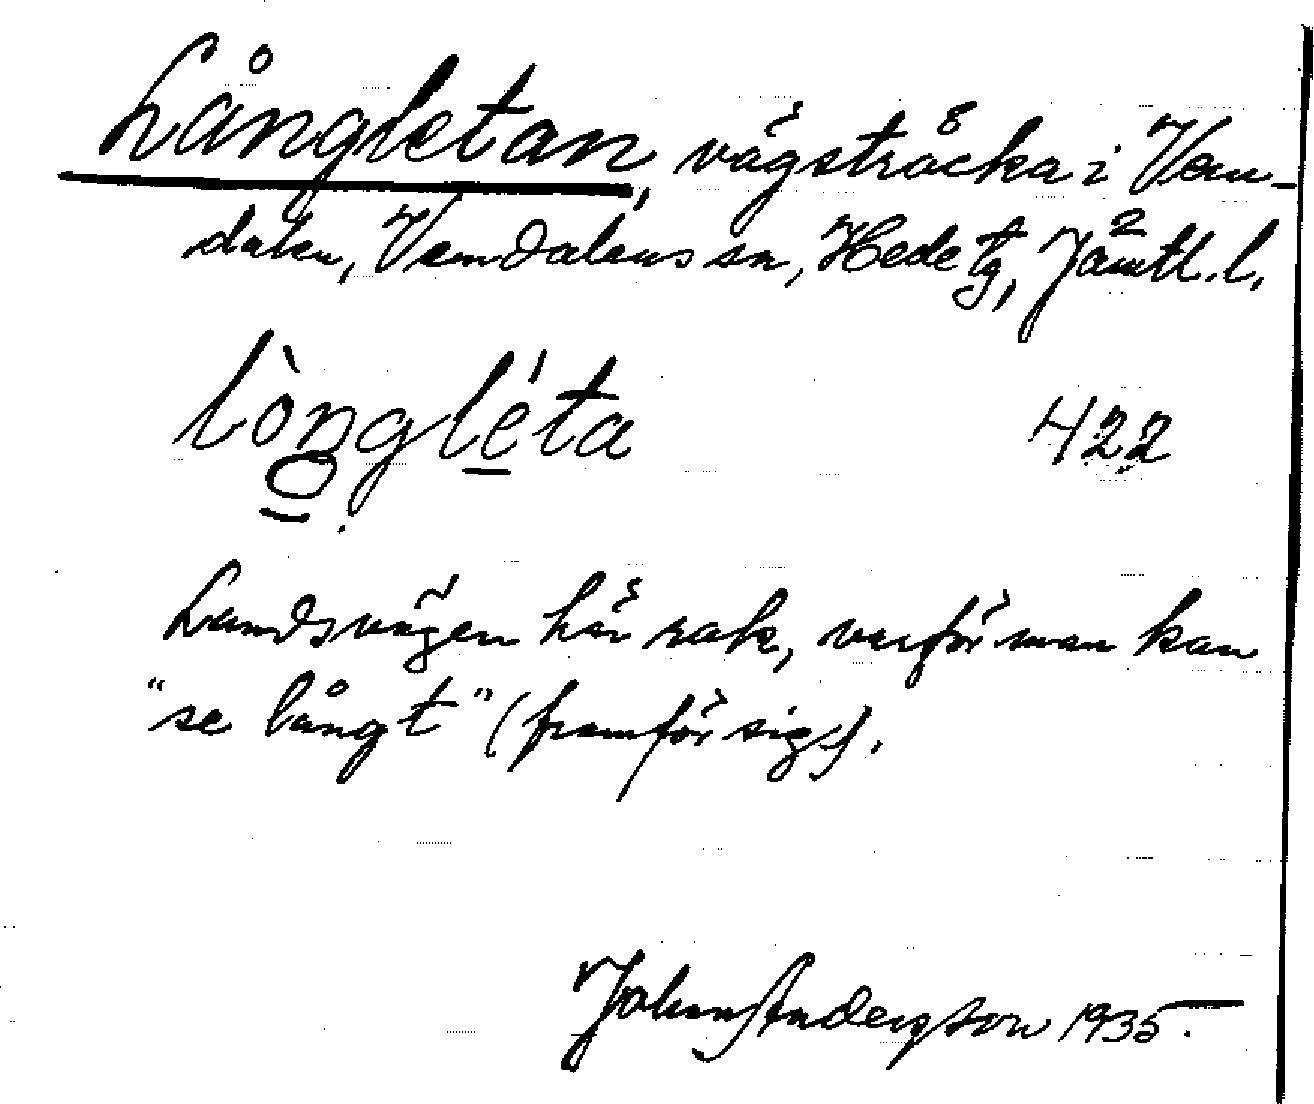 Långletan, vägsträcka i Vem-
dalen, Vemdalens sn, Hede tg, Jämtl. l.
lòngléta 422
Landsvägen här rak, varför man kan
"se långt" (framför sig).
Johan Anderson 1935.